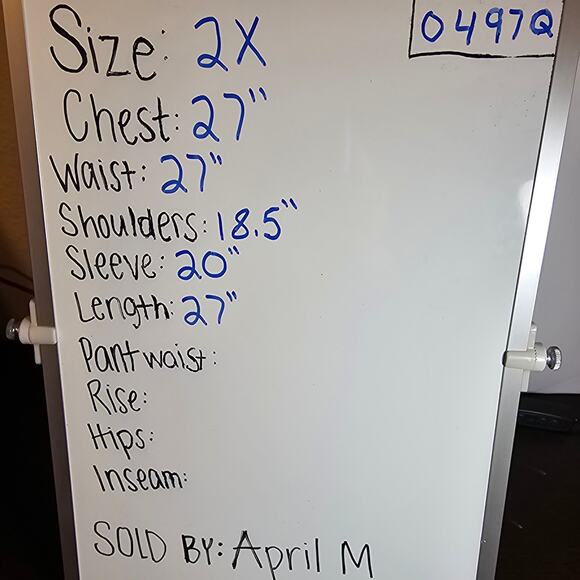 Size: 2X
0497Q
Chest: 27"
Waist: 27"
Shoulders: 18.5"
Sleeve: 20"
Length: 27"
Pant waist:
Rise:
Hips:
Inseam:
SOLD BY: April M